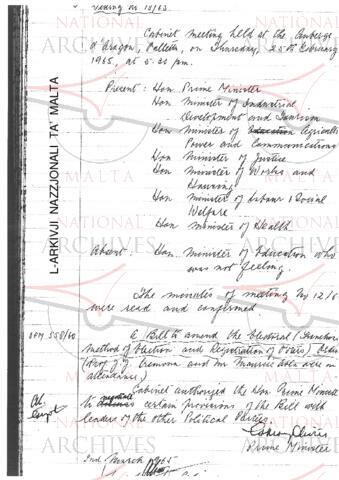 Meeting No 13/65
Cabinet meeting held at the Auberge
d'Aragon, Valletta, on Thursday, 25th February
1965, at 5.30 pm.
Present: Hon. Prime Minister
Hon Minister of Industrial
Development and Tourism
Hon Minister of Agriculture
Power and Communications
Hon Minister of Justice
Hon Minister of Works and
Housing
Hon Minister of Labour & Social
Welfare
Hon Minister of Health
Absent: Hon. Minister of Education who
was not feeling.
The minutes of meeting No 12/6
were read and confirmed
OPM 558/60
A Bill to amend the Electoral (Franchise
method of Election and Registration of Voters)
(Prof. J. Cremona and Mr Maurice were in
attendance)
Cabinet authorised the Hon Prime Minister
to negotiate certain provisions of the Bill with
leaders of the other Political Parties.
Prime Minister
2nd March 1965
L-ARKIVJI NAZZJONALI TA' MALTA
NATIONAL
ARCHIVES
MALTA